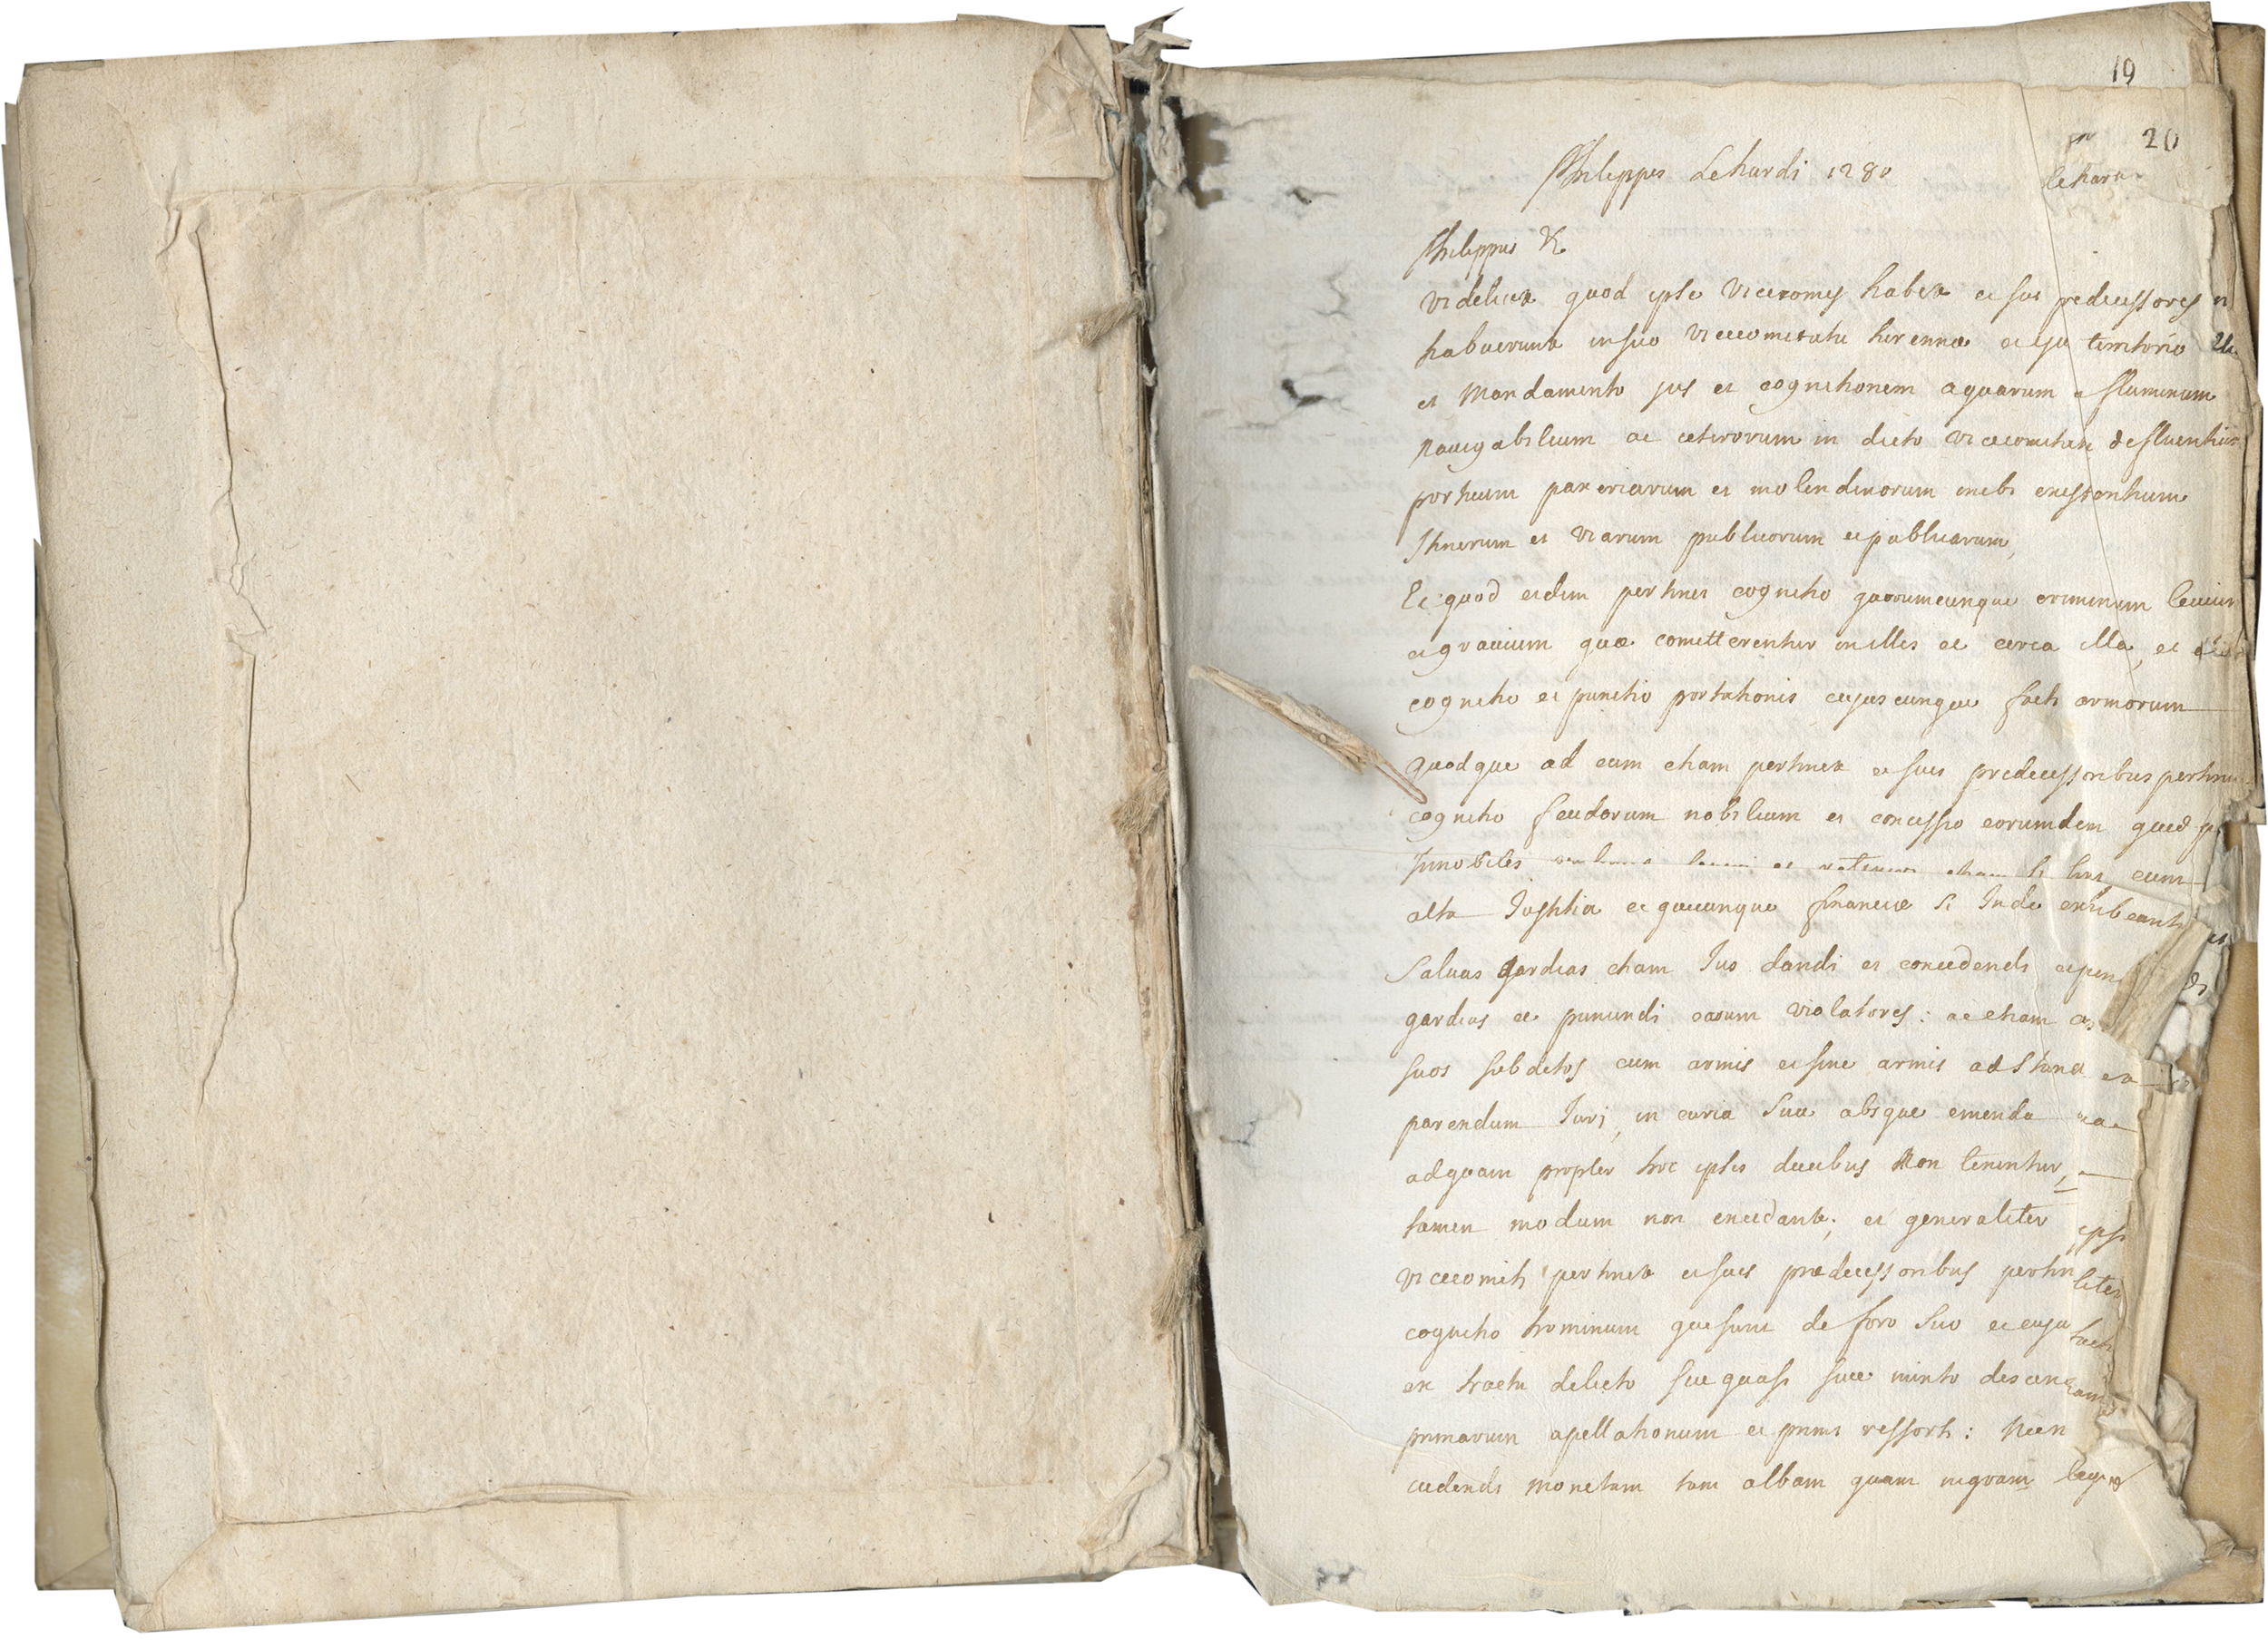 19
20
Philippes Lehardi 1280
lehardi
Philippus &c
videlicet quod ipse vicecomes habet et sui predecessores
habuerunt in suo vicecomitatu turennæ eiusque territorio
et Mandamento jus et cognitionem aquarum et fluminum
navigabilium ac ceterorum in dicto vicecomitatu defluentium
portuum paxeriarum et molendinorum inibi existentium
Itinerum et viarum publicorum et publicarum,
Et quod eidem pertinet cognitio quorumcunque criminum levium
et gravium quæ cometterentur in illis et circa illa, et
cognitio et punitio portationis cujuscunque facti armorum
quodque ad eum etiam pertinet et suis predecessoribus pertinuit
cognitio feudorum nobilium et concessio eorumdem quod
Innobiles et retinere etiam si sint cum
alta Justitia et quecunque financiæ si Inde exhibeantur
Salvas gardias etiam Jus dandi et concedendi
gardias et puniendi earum violatores: ac etiam
suos subditos cum armis et sine armis ad standum
parendum Juri, in curia sua absque emenda
ad quam propter hoc ipsis ducibus Non tenentur,
tamen modum non excedant; et generaliter ipsi
vicecomiti pertinet et suis prædecessoribus pertinuit
cognitio hominum qui sunt de foro suo
ex tractu delicto sive quasi sive
primarum apellationum et primi ressorti: Necn
cudendi Monetam tam albam quam nigram